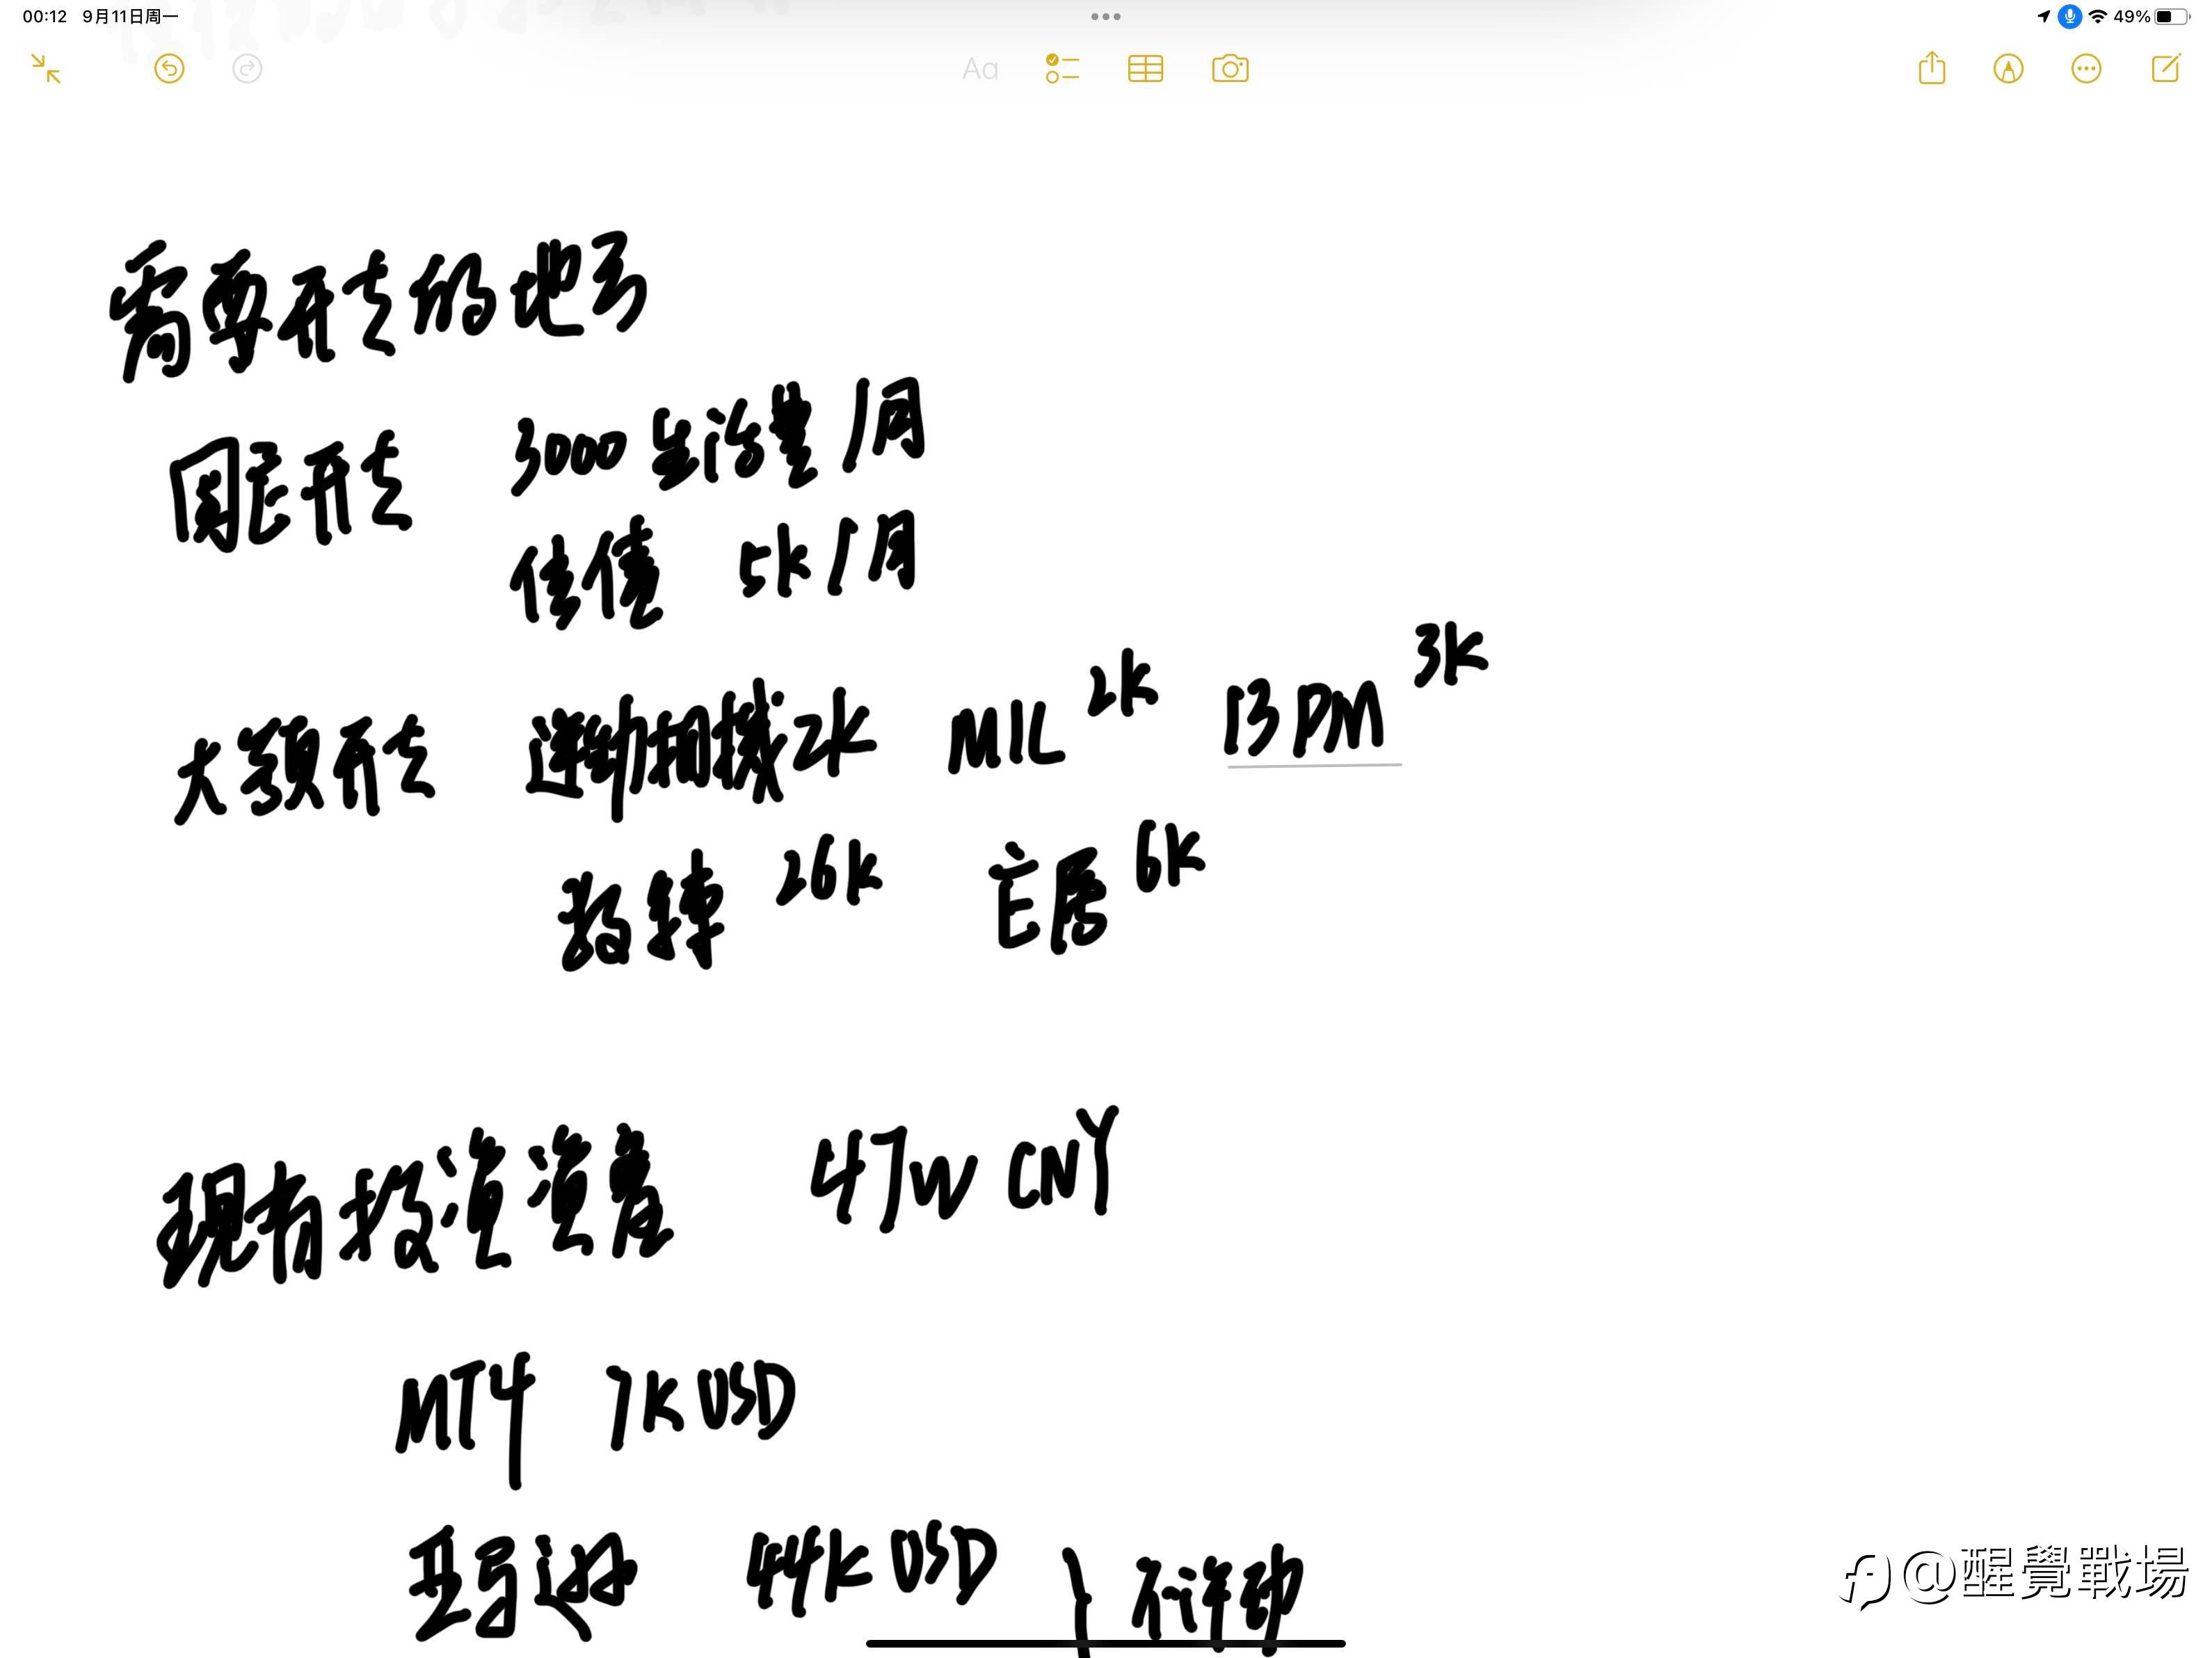 00:12 9月11日周一
49%
Aa
需要开支的地方
固定开支 3000 生活费 /月
信债 5k/月
大额开支 运动相机 2k MIL 2k 13PM 3k
教练 26k 6k
现有投资资产 47W CNY
MT4 7K USD
亚马逊 44K USD } 不许动
@醒覺戰場